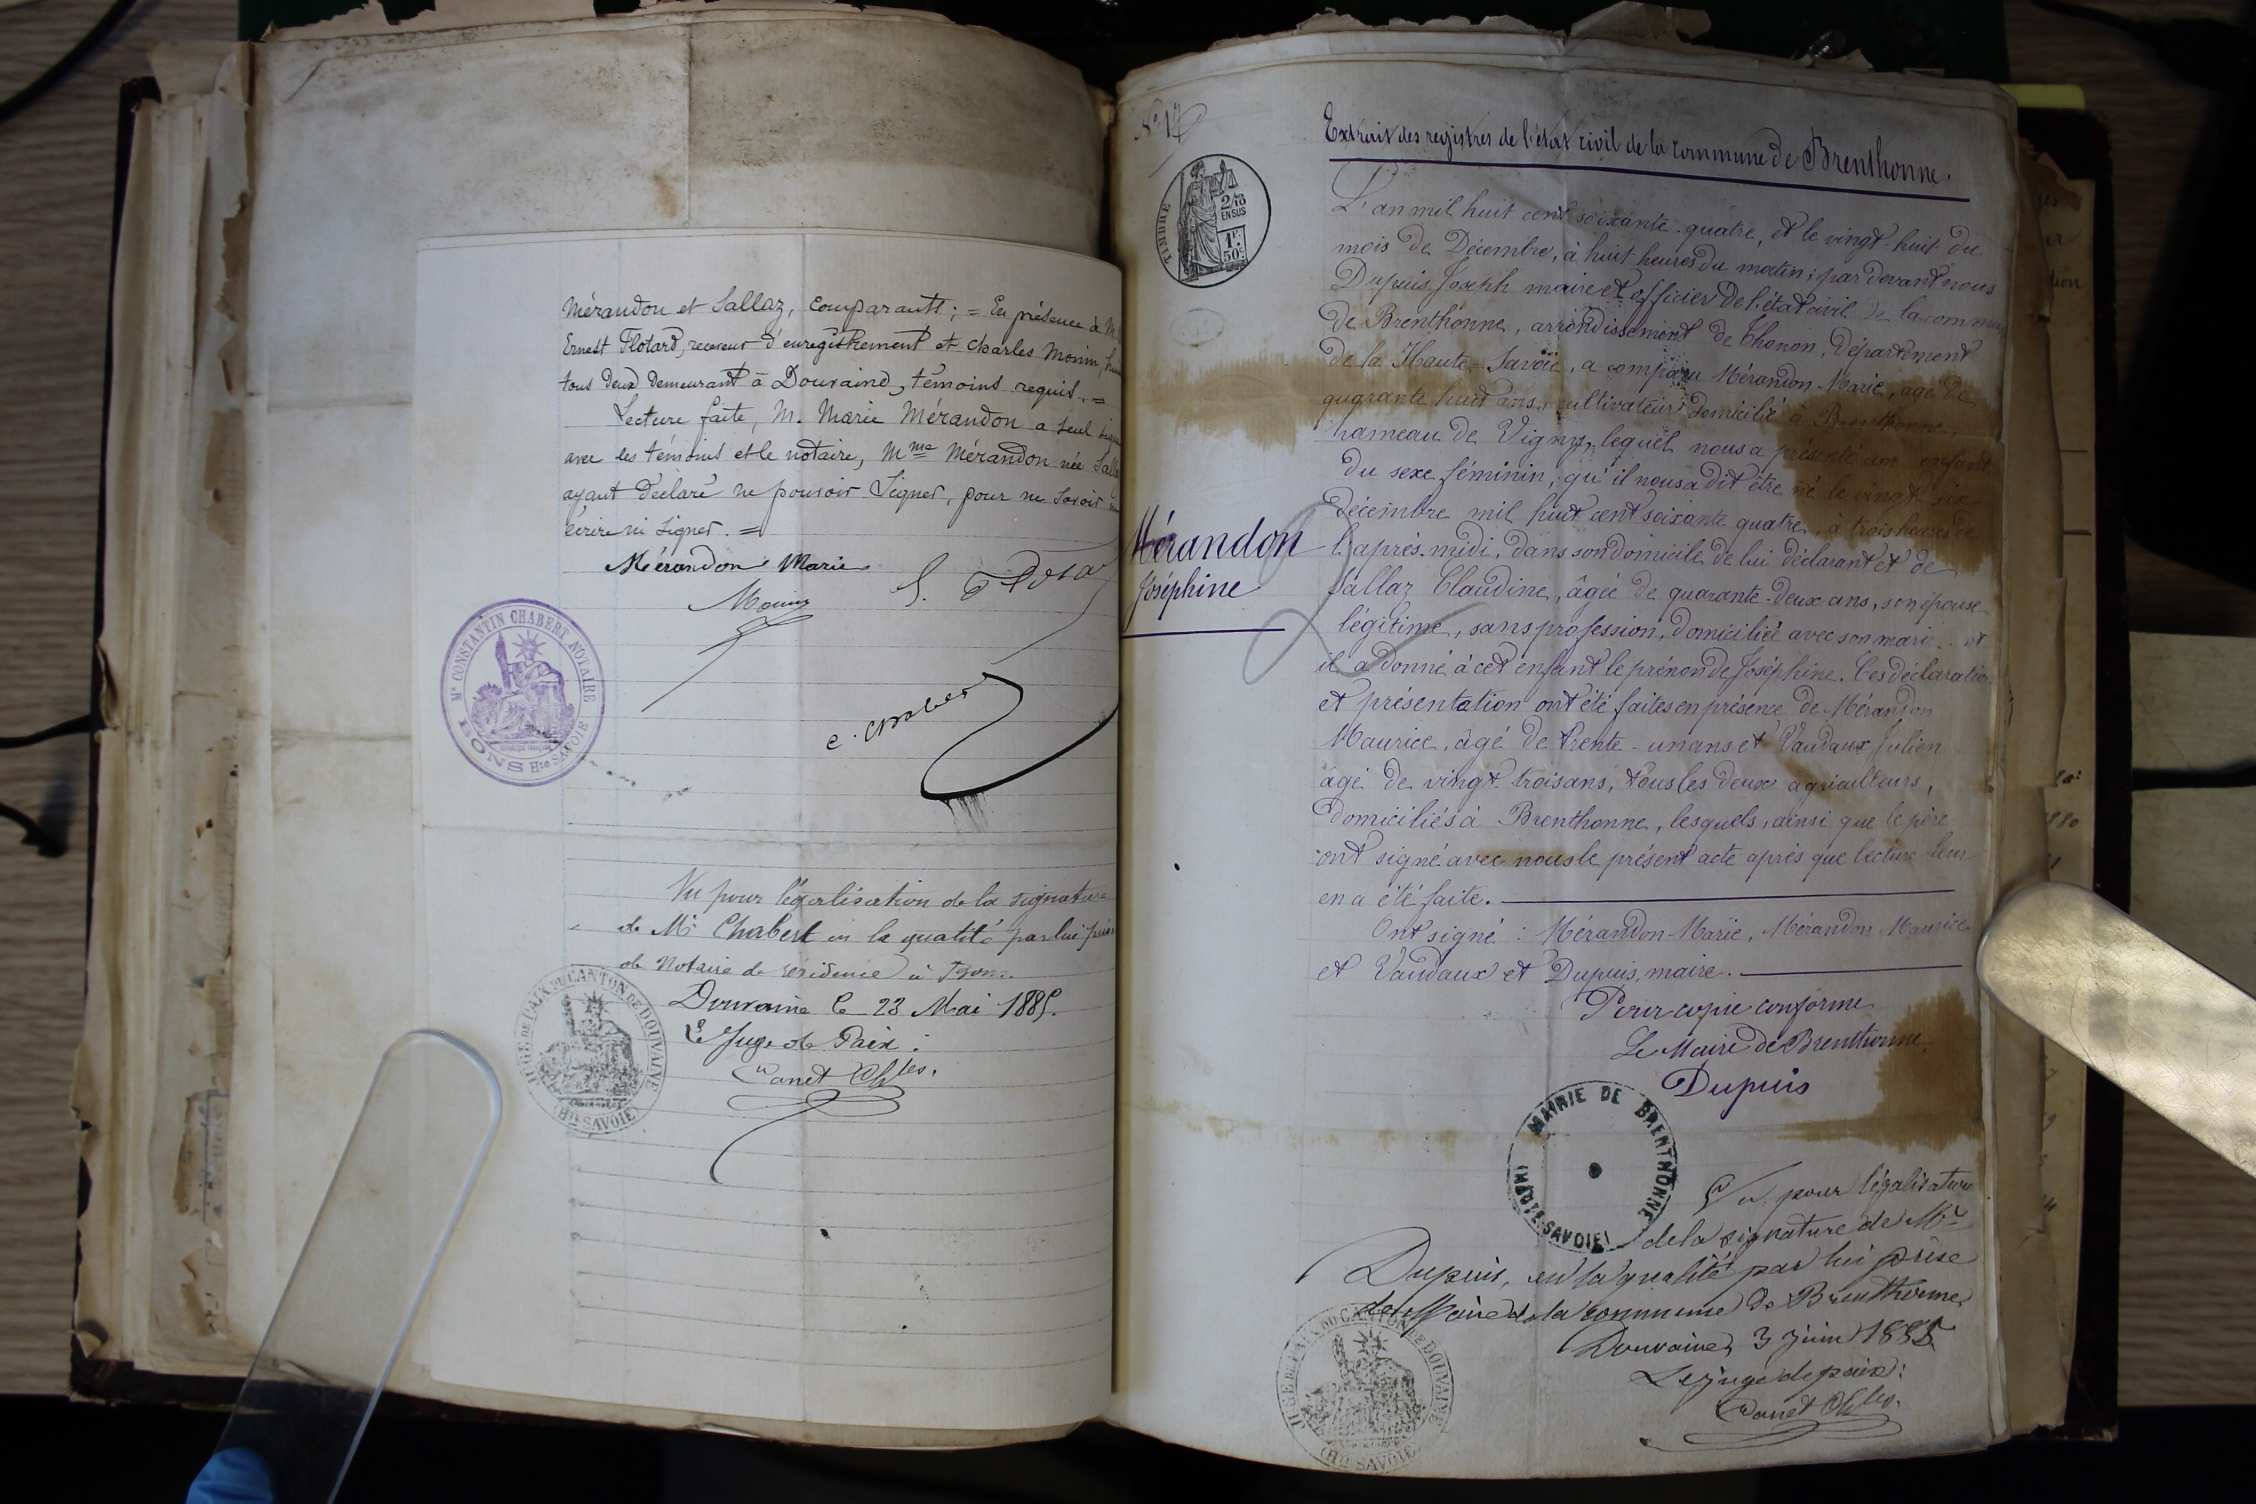 Mérandon et Sallaz, comparants ; = En présence de M.
Ernest Flotard, receveur d'enregistrement et Charles Monin,
tous deux demeurant à Douvaine, témoins requis. =
Lecture faite, M. Marie Mérandon a seul
avec les témoins et le notaire, Mme Mérandon née
ayant déclaré ne pouvoir signer, pour ne savoir
écrire ni signer. =
Mérandon Marie
Monin
Me CONSTANTIN CHABERT NOTAIRE
BONS Hte SAVOIE
C. Chabert
Vu pour légalisation de la signature
de Me Chabert en la qualité par lui
de Notaire de résidence à
Douvaine le 23 Mai 1885.
Le Juge de Paix :
Canet Ch les.
JUGE DE PAIX DU CANTON DE DOUVAINE
(Hte SAVOIE)
No 17
TIMBRE
2/10
EN SUS
1F.
50c
Extrait des registres de l'état civil de la commune de Brenthonne.
L'an mil huit cent soixante-quatre, et le vingt-huit du
mois de Décembre, à huit heures du matin ; par devant nous
Dupuis Joseph maire et officier de l'état civil de la commune
de Brenthonne, arrondissement de Thonon, Département
de la Haute-Savoie, a comparu Mérandon Marie, âgé de
quarante huit ans, cultivateur domicilié à Brenthonne,
hameau de Vigny, lequel nous a présenté un enfant
du sexe féminin, qu'il nous a dit être né le vingt-six
décembre mil huit cent soixante quatre, à trois heures de
Mérandon
Joséphine
l'après-midi, dans son domicile de lui déclarant et de
Sallaz Claudine, âgée de quarante-deux ans, son épouse
légitime, sans profession, domiciliée avec son mari et
il a donné à cet enfant le prénom de Joséphine. Ces déclaration
et présentation ont été faites en présence de Mérandon
Maurice, âgé de trente-un ans et Vaudaux Julien
âgé de vingt-trois ans, tous les deux agriculteurs,
domiciliés à Brenthonne, lesquels, ainsi que le père
ont signé avec nous le présent acte après que lecture leur
en a été faite.
Ont signé : Mérandon Marie, Mérandon Maurice
et Vaudaux et Dupuis, maire.
Pour copie conforme
Le Maire de Brenthonne
Dupuis
MAIRIE DE BRENTHONNE
(HAUTE-SAVOIE)
Vu pour légalisation
de la signature de Mr
Dupuis, en la qualité par lui prise
de Maire de la commune de Brenthonne
Douvaine, 3 juin 1885
Le juge de paix :
Canet Ch les.
JUGE DE PAIX DU CANTON DE DOUVAINE
(Hte SAVOIE)